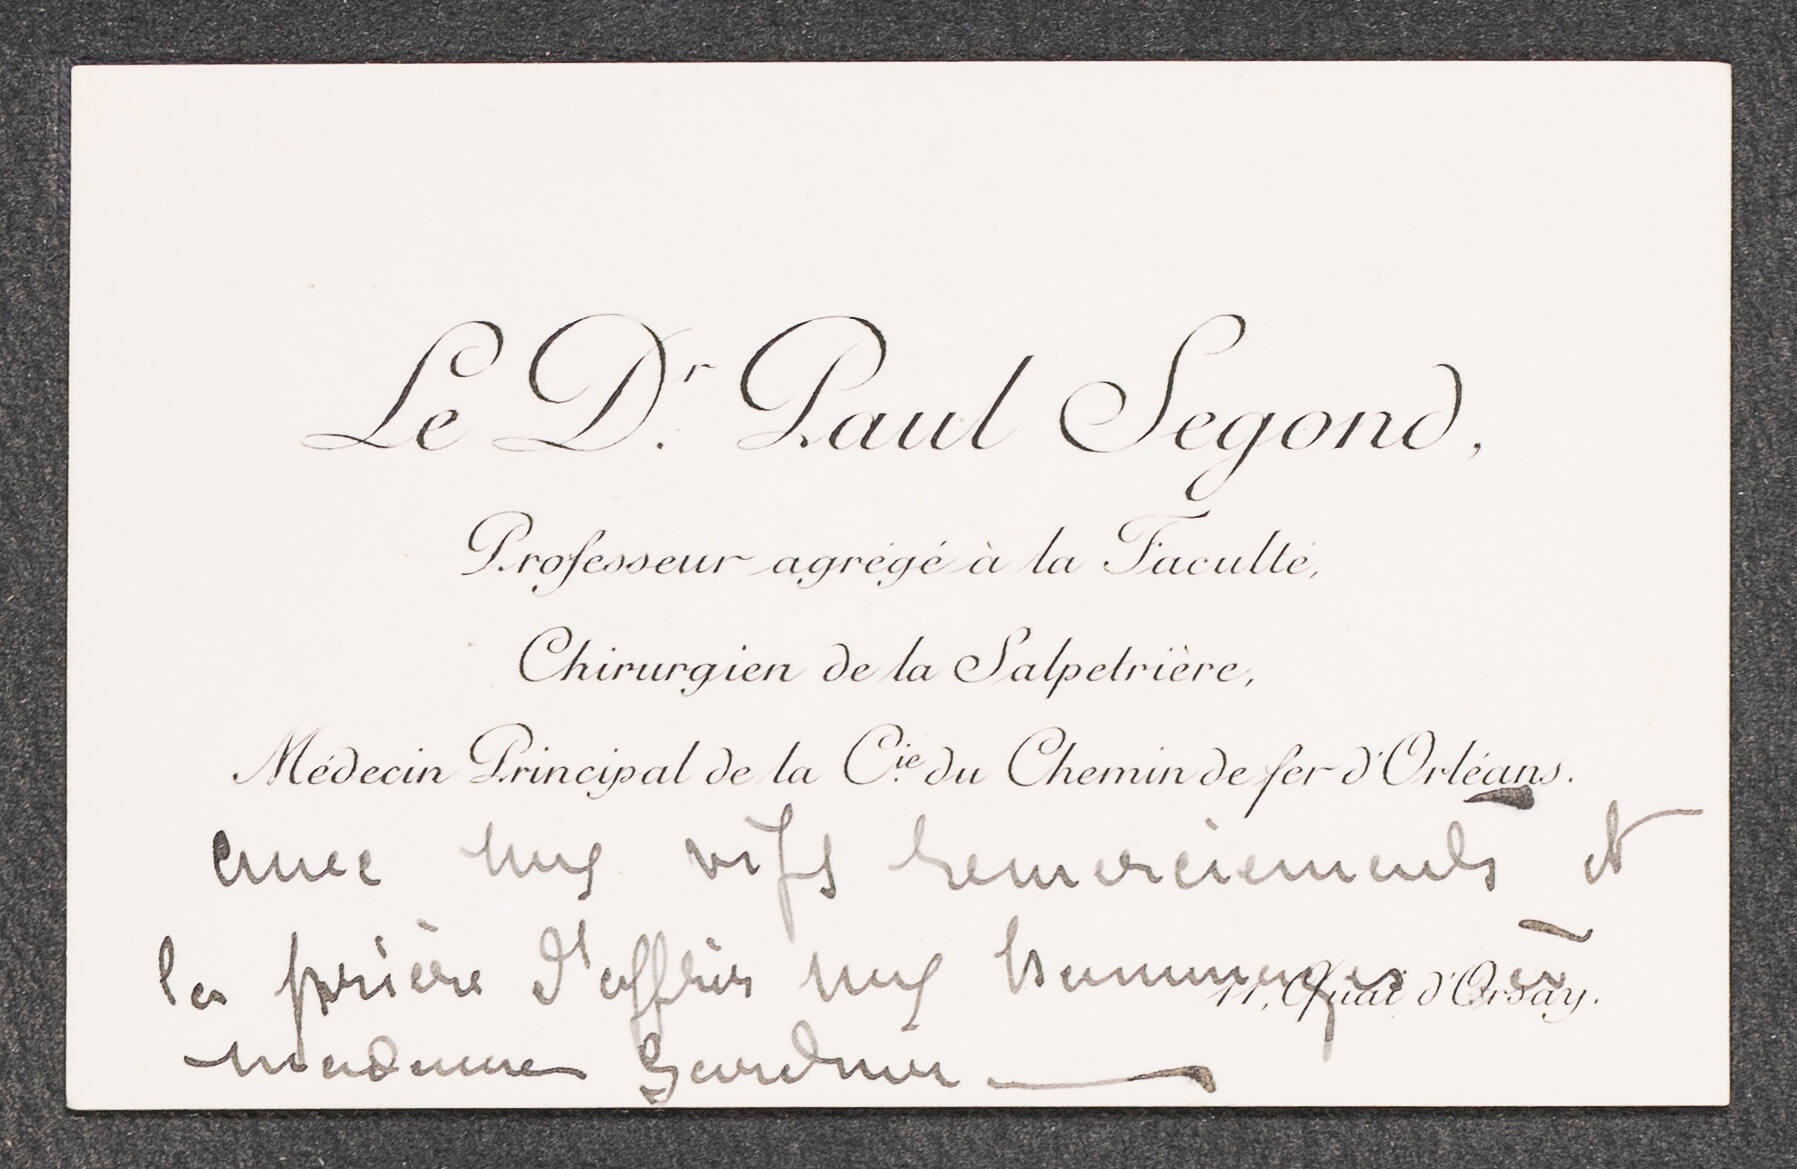 Le Dr. Paul Segond,
Professeur agrégé à la Faculté,
Chirurgien de la Salpetrière,
Médecin Principal de la Cie du Chemin de fer d'Orléans.
avec mes vifs remerciements et
la prière d'offrir mes hommages à
11, Quai d'Orsay.
Madame Gardner